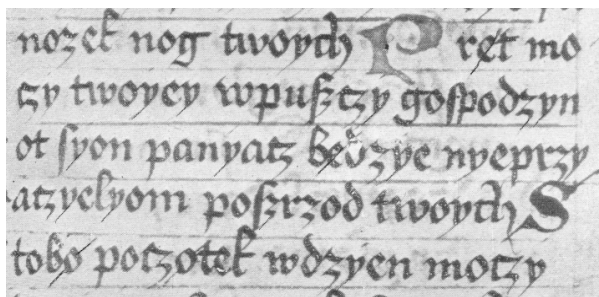 nozek nog twoych Pręt mo
czy twoyey wpuszczy gospodzyn
ot syon panyacz będzye nyeprzy
aczyelyom poszrzod twoych S
tobo poczotek wdzyen moczy